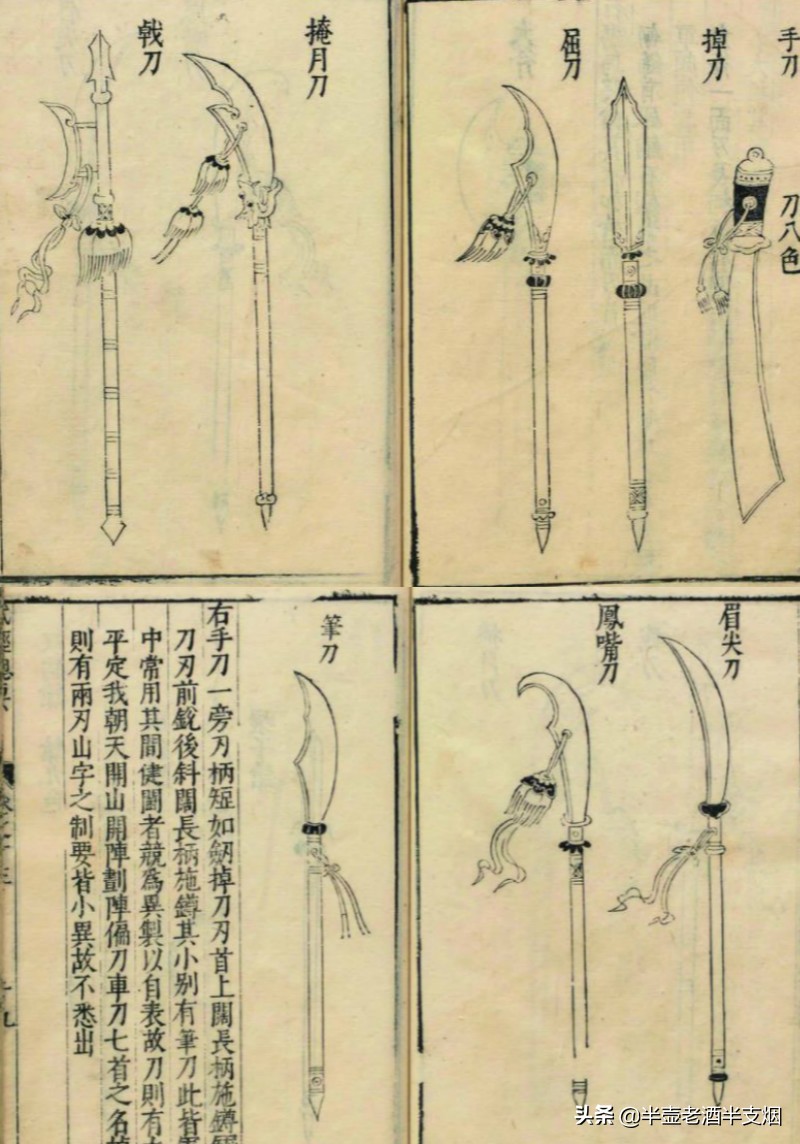 手刀
刀八色
掉刀
屈刀
掩月刀
戟刀
眉尖刀
鳳嘴刀
筆刀
右手刀一旁刃柄短如劒掉刀刃首上闊長柄施鐏
刀刃前銳後斜闊長柄施鐏其小别有筆刀此皆軍
中常用其間健鬭者競爲異製以自表故刀則有太
平定我朝天開山開陣劃陣偏刀車刀匕首之名
則有兩刃山字之制要皆小異故不悉出
头条 @半壶老酒半支烟